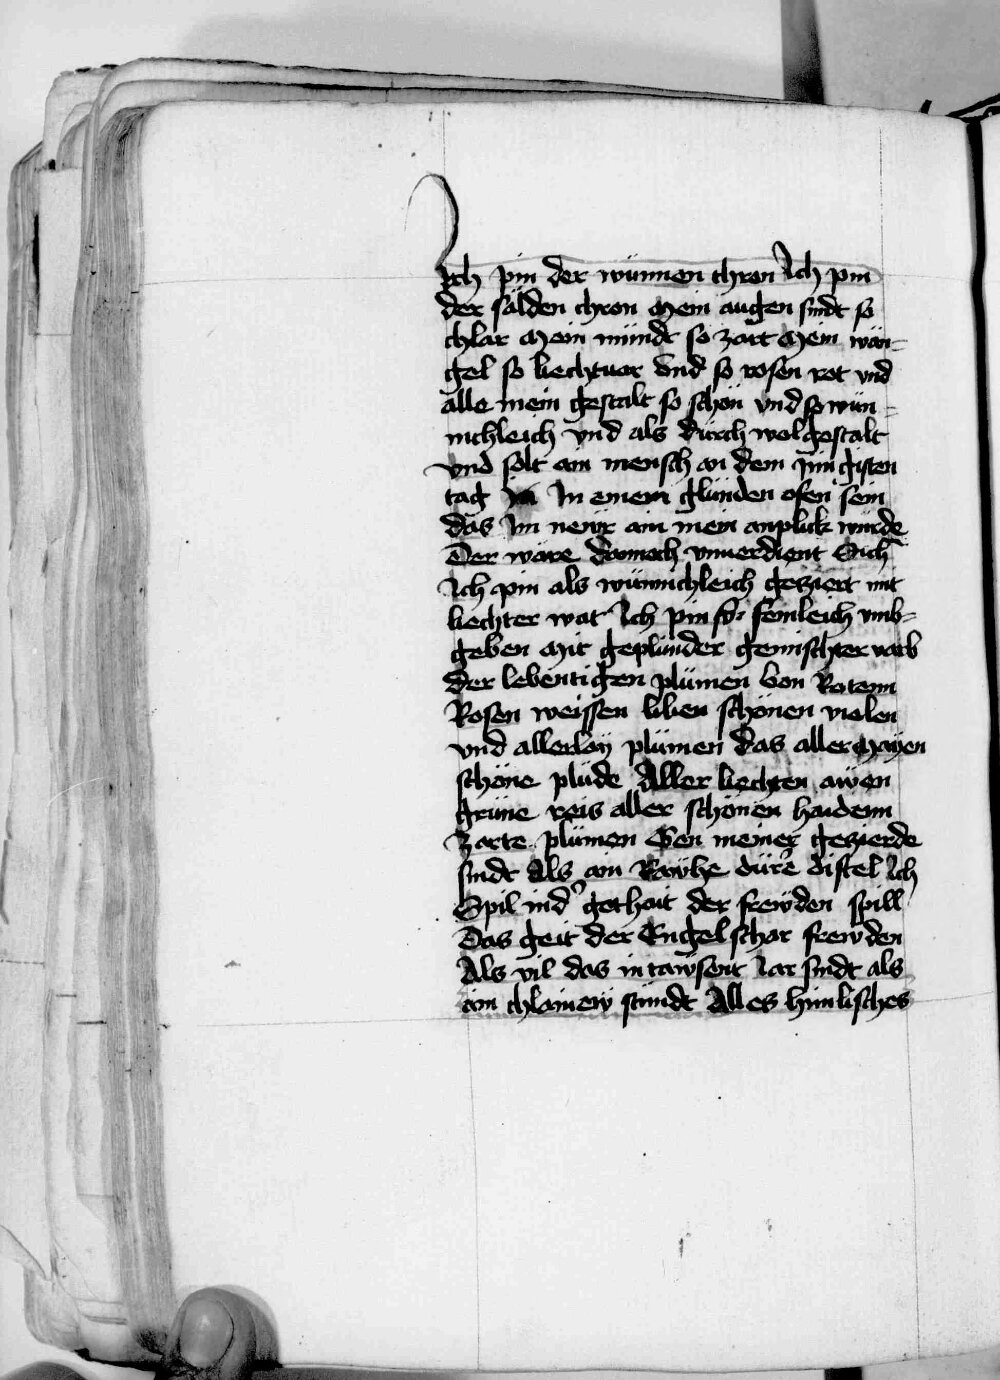 Ich pin der wünnen thron Ich pin
der sälden chron Mein augen sindt so
chlar Mein mündt so zart Mein wän-
gel so liechtuar vnd so rosen rot vnd
alle mein gestalt so schön vnd so wün-
nichleich vnd als dürch wolgestalt
vnd solt ain mensch an dem jüngisten
tag In einem glünden ofen sein
das Im newr ain mein anplick würde
Der wäre dannoch vnuerdient Sich
Ich pin als wünnichleich geziert mit
liechter wat Ich pin so feinleich vmb-
geben Mit geplümder gemischter varb
der lebentigen plümen Von Rotenn
Rosen weissen lilien schönen violen
vnd allerlay plümen das aller Mayen
schöne plüde Aller liechten awen
grüne reis aller schönen haidenn
zarte plümen Gen meiner gezierde
sindt Als ain Rawhe dürre distel Ich
Spil in dʼ gothait der frewden spill
Das geit der Engel schar frewden
Als vil das in tawsent Iar sindt als
ain chlainew stündt Alles himlisches